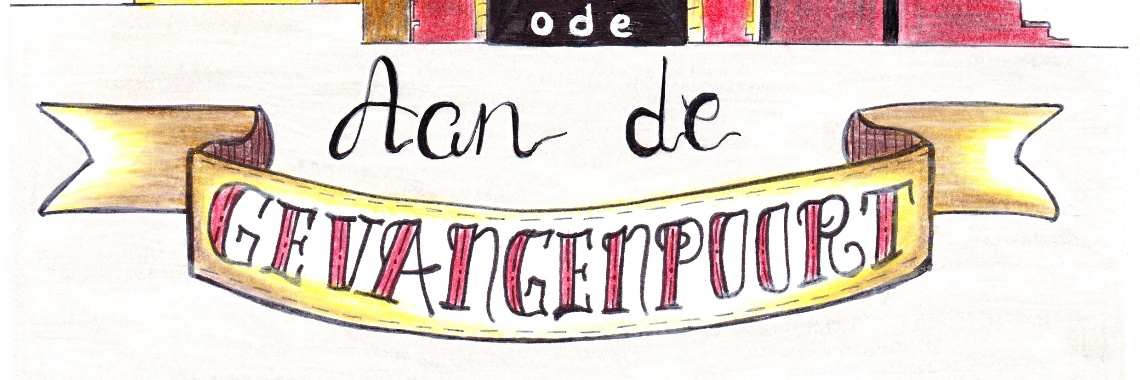 ode
Aan de
GEVANGENPOORT